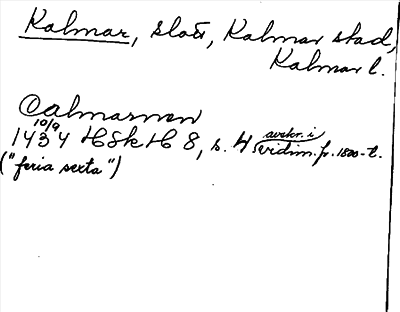 Kalmar, slott, Kalmar stad,
Kalmar l.
Calmarnen
10/9
1434 HSkH 8, s. 4 avskr. i vidim. fr. 1500-t.
("feria sexta")